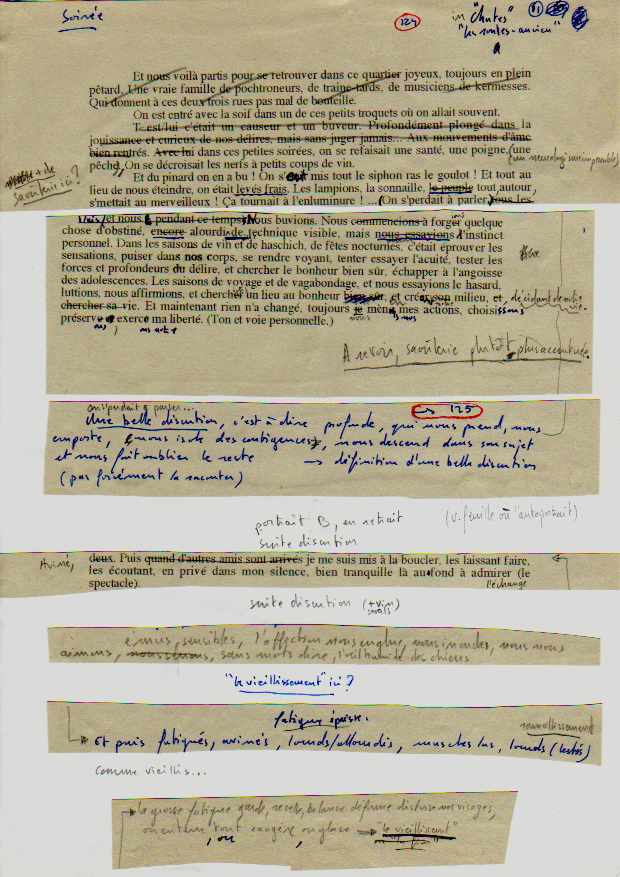 Soirée
124
in "Chutes"
"les routes-ancien"
Et nous voilà partis pour se retrouver dans ce quartier joyeux, toujours en plein
pétard. Une vraie famille de pochtroneurs, de traine-tards, de musiciens de kermesses.
Qui donnent à ces deux trois rues pas mal de bouteille.
On est entré avec la soif dans un de ces petits troquets où on allait souvent.
T. est lui c'était un causeur et un buveur. Profondément plongé dans la
jouissance et curieux de nos délires, mais sans juger jamais... Aux mouvements d'âme
bien rentrés. Avec lui dans ces petites soirées, on se refaisait une santé, une poigne, (une
pêche), On se décroisait les nerfs à petits coups de vin.
+ de
saoûlerie ici ?
Et du pinard on en a bu ! On s'est mis tout le siphon ras le goulot ! Et tout au
lieu de nous éteindre, on était levés frais. Les lampions, la sonnaille, le peuple tout autour,
s'mettait au merveilleux ! Ça tournait à l'enluminure ! ... (On s'perdait à parler) tous les
trois, et nous pendant ce temps, Nous buvions. Nous commencions à forger quelque
chose d'obstiné, encore alourdi de technique visible, mais nous essayions l'instinct
personnel. Dans les saisons de vin et de haschich, de fêtes nocturnes, c'était éprouver les
sensations, puiser dans nos corps, se rendre voyant, tenter essayer l'acuité, tester les
forces et profondeurs du délire, et chercher le bonheur bien sûr, échapper à l'angoisse
des adolescences. Les saisons de voyage et de vagabondage, et nous essayions le hasard,
luttions, nous affirmions, et cherchions un lieu au bonheur bien sûr, et créer son milieu, et
chercher sa vie. Et maintenant rien n'a changé, toujours je mène mes actions, choisissons
préserve et exerce ma liberté. (Ton et voie personnelle.)
A revoir, saoûlerie plutôt plus accentuée.
on s'perdait à parler...
→ 125
Une belle discution, c'est à dire profonde, qui nous prend, nous
emporte, nous isole des contigences, nous descend dans son sujet
et nous fait oublier le reste → définition d'une belle discution
(pas forcément la raconter)
portrait B, en retrait
(v. feuille où l'autoportrait)
suite discution
Aviné,
deux. Puis quand d'autres amis sont arrivés je me suis mis à la boucler, les laissant faire,
les écoutant, en privé dans mon silence, bien tranquille là au fond à admirer (le
spectacle).
l'échange
suite discution (+ vin
émus, sensibles, l'affection nous englue, nous inonde, nous nous
aimons, sans mots dire, l'œil humide des chiens
"le vieillissement" ici ?
fatigue épaisse.
Et puis fatigués, avinés, lourds/alourdis, muscles las, lourds (lestés)
comme vieillis...
la grosse fatigue
"le vieillissent"
, ou